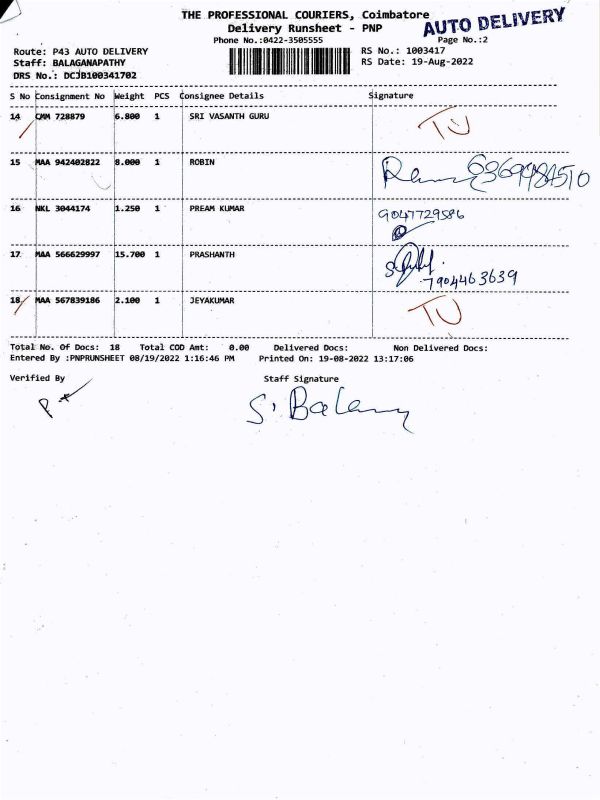 THE PROFESSIONAL COURIERS, Coimbatore
AUTO DELIVERY
Delivery Runsheet - PNP
Phone No.:0422-3505555 Page No.:2
Route: P43 AUTO DELIVERY RS No.: 1003417
Staff: BALAGANAPATHY RS Date: 19-Aug-2022
DRS No.: DCJB100341702
S No Consignment No Weight PCS Consignee Details Signature
14 CMM 728879 6.800 1 SRI VASANTH GURU TU
15 MAA 942402822 8.000 1 ROBIN
16 NKL 3044174 1.250 1 PREAM KUMAR 9047729586
17 MAA 566629997 15.700 1 PRASHANTH
7904463639
18 MAA 567839186 2.100 1 JEYAKUMAR TU
Total No. Of Docs: 18 Total COD Amt: 0.00 Delivered Docs: Non Delivered Docs:
Entered By :PNPRUNSHEET 08/19/2022 1:16:46 PM Printed On: 19-08-2022 13:17:06
Verified By Staff Signature